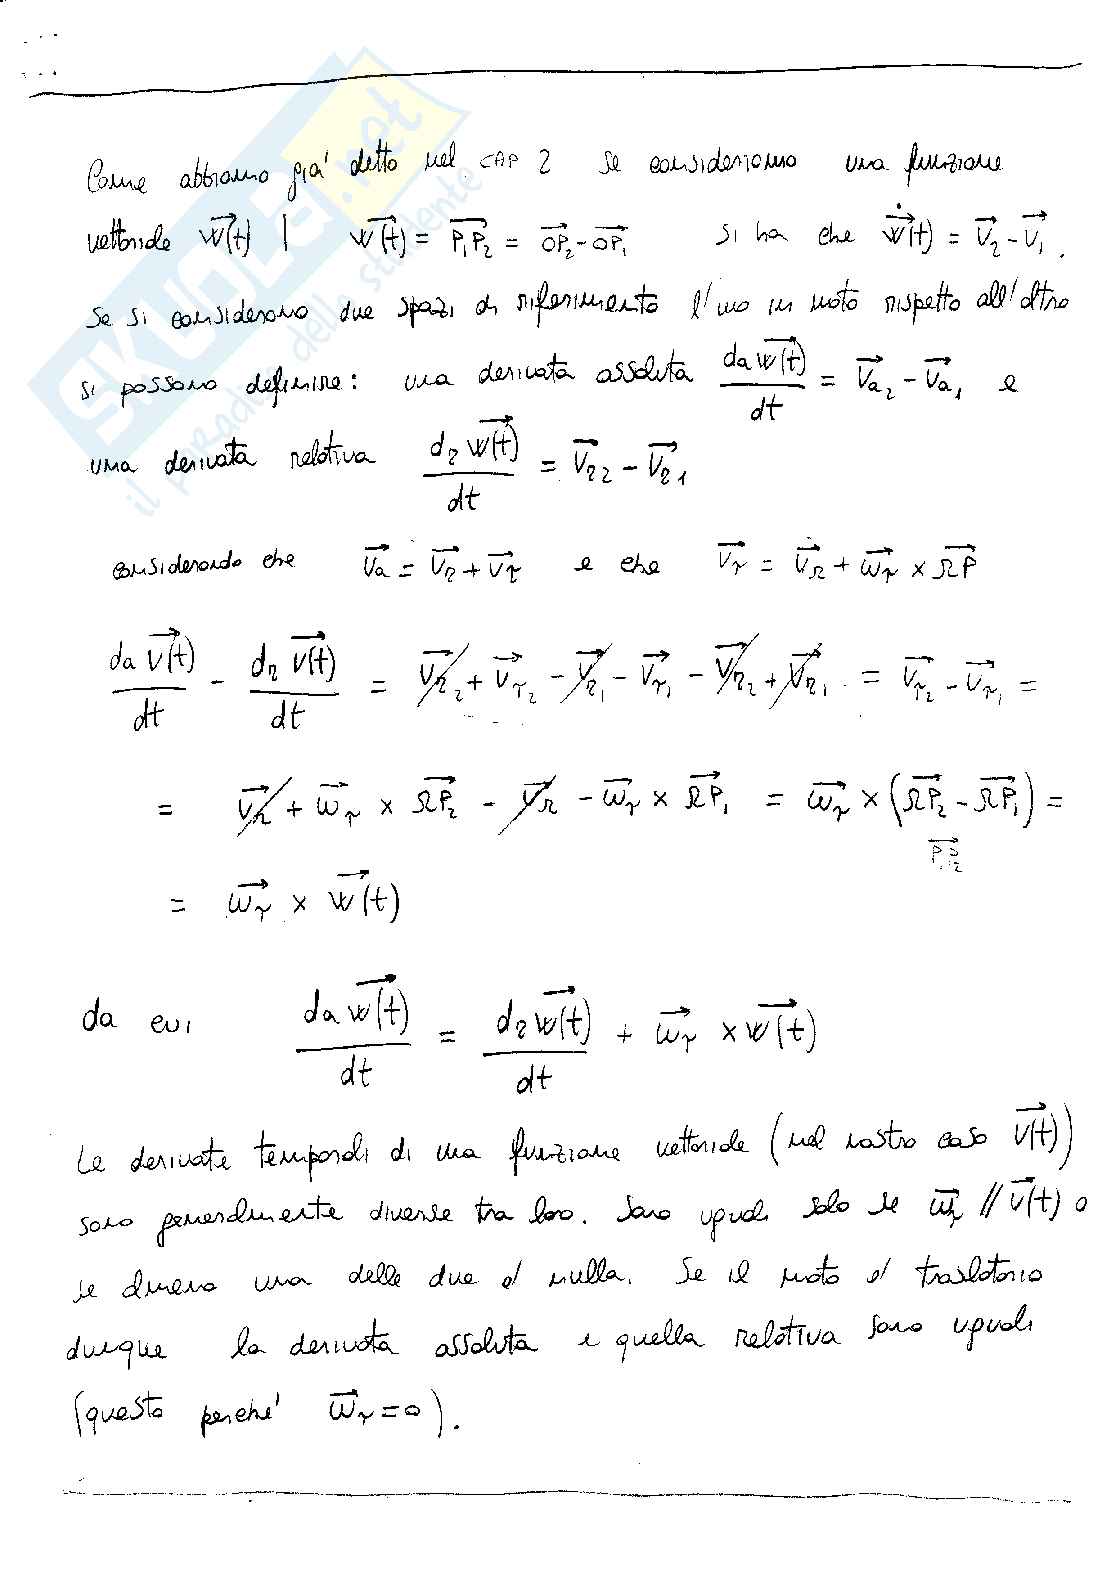 SKUOLA.net
il paradiso dello studente
Come abbiamo già detto nel CAP 2 se consideriamo una funzione
vettoriale w⃗(t) | w⃗(t) = P₁P₂⃗ = OP₂⃗ - OP₁⃗ si ha che ẇ⃗(t) = v⃗₂ - v⃗₁.
Se si considerano due spazi di riferimento l'uno in moto rispetto all'altro
si possono definire: una derivata assoluta da w⃗(t)/dt = v⃗a₂ - v⃗a₁ e
una derivata relativa dr w⃗(t)/dt = v⃗r₂ - v⃗r₁
considerando che v⃗a = v⃗r + v⃗τ e che v⃗τ = v⃗Ω + ω⃗τ × ΩP⃗
da v⃗(t)/dt - dr v⃗(t)/dt = v⃗r₂ + v⃗τ₂ - v⃗r₁ - v⃗τ₁ - v⃗r₂ + v⃗r₁ = v⃗τ₂ - v⃗τ₁ =
= v⃗Ω + ω⃗τ × ΩP₂⃗ - v⃗Ω - ω⃗τ × ΩP₁⃗ = ω⃗τ × (ΩP₂⃗ - ΩP₁⃗) =
P₁P₂⃗
= ω⃗τ × w⃗(t)
da cui da w⃗(t)/dt = dr w⃗(t)/dt + ω⃗τ × w⃗(t)
Le derivate temporali di una funzione vettoriale (nel nostro caso v⃗(t))
sono generalmente diverse tra loro. Sono uguali solo se ω⃗τ // v⃗(t) o
se almeno una delle due e' nulla. Se il moto e' traslatorio
dunque la derivata assoluta e quella relativa sono uguali
(questo perché ω⃗τ = 0).